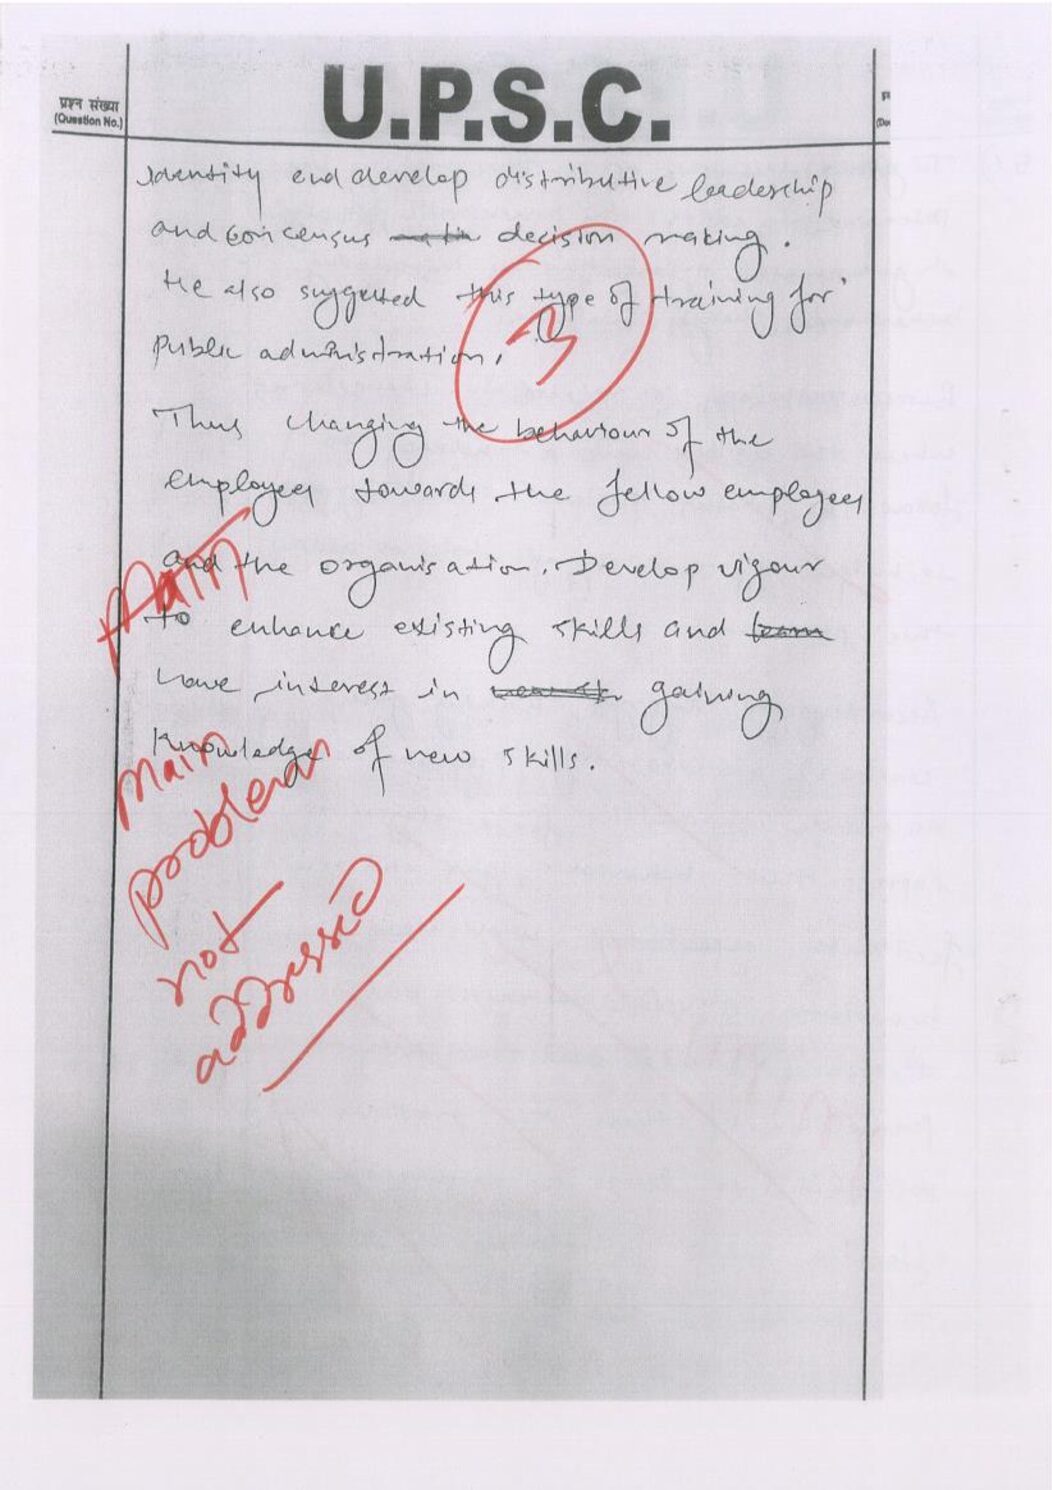 प्रश्न संख्या
(Question No.)
U.P.S.C.
Identity and develop distributive leadership
and concensus decision making.
He also suggested this type of training for
Public administration.
3
Thus changing the behaviour of the
employees towards the fellow employees
and the organisation. Develop vigour
to enhance existing skills and
have interest in gaining
knowledge of new skills.
Main
main
problem
not
addressed